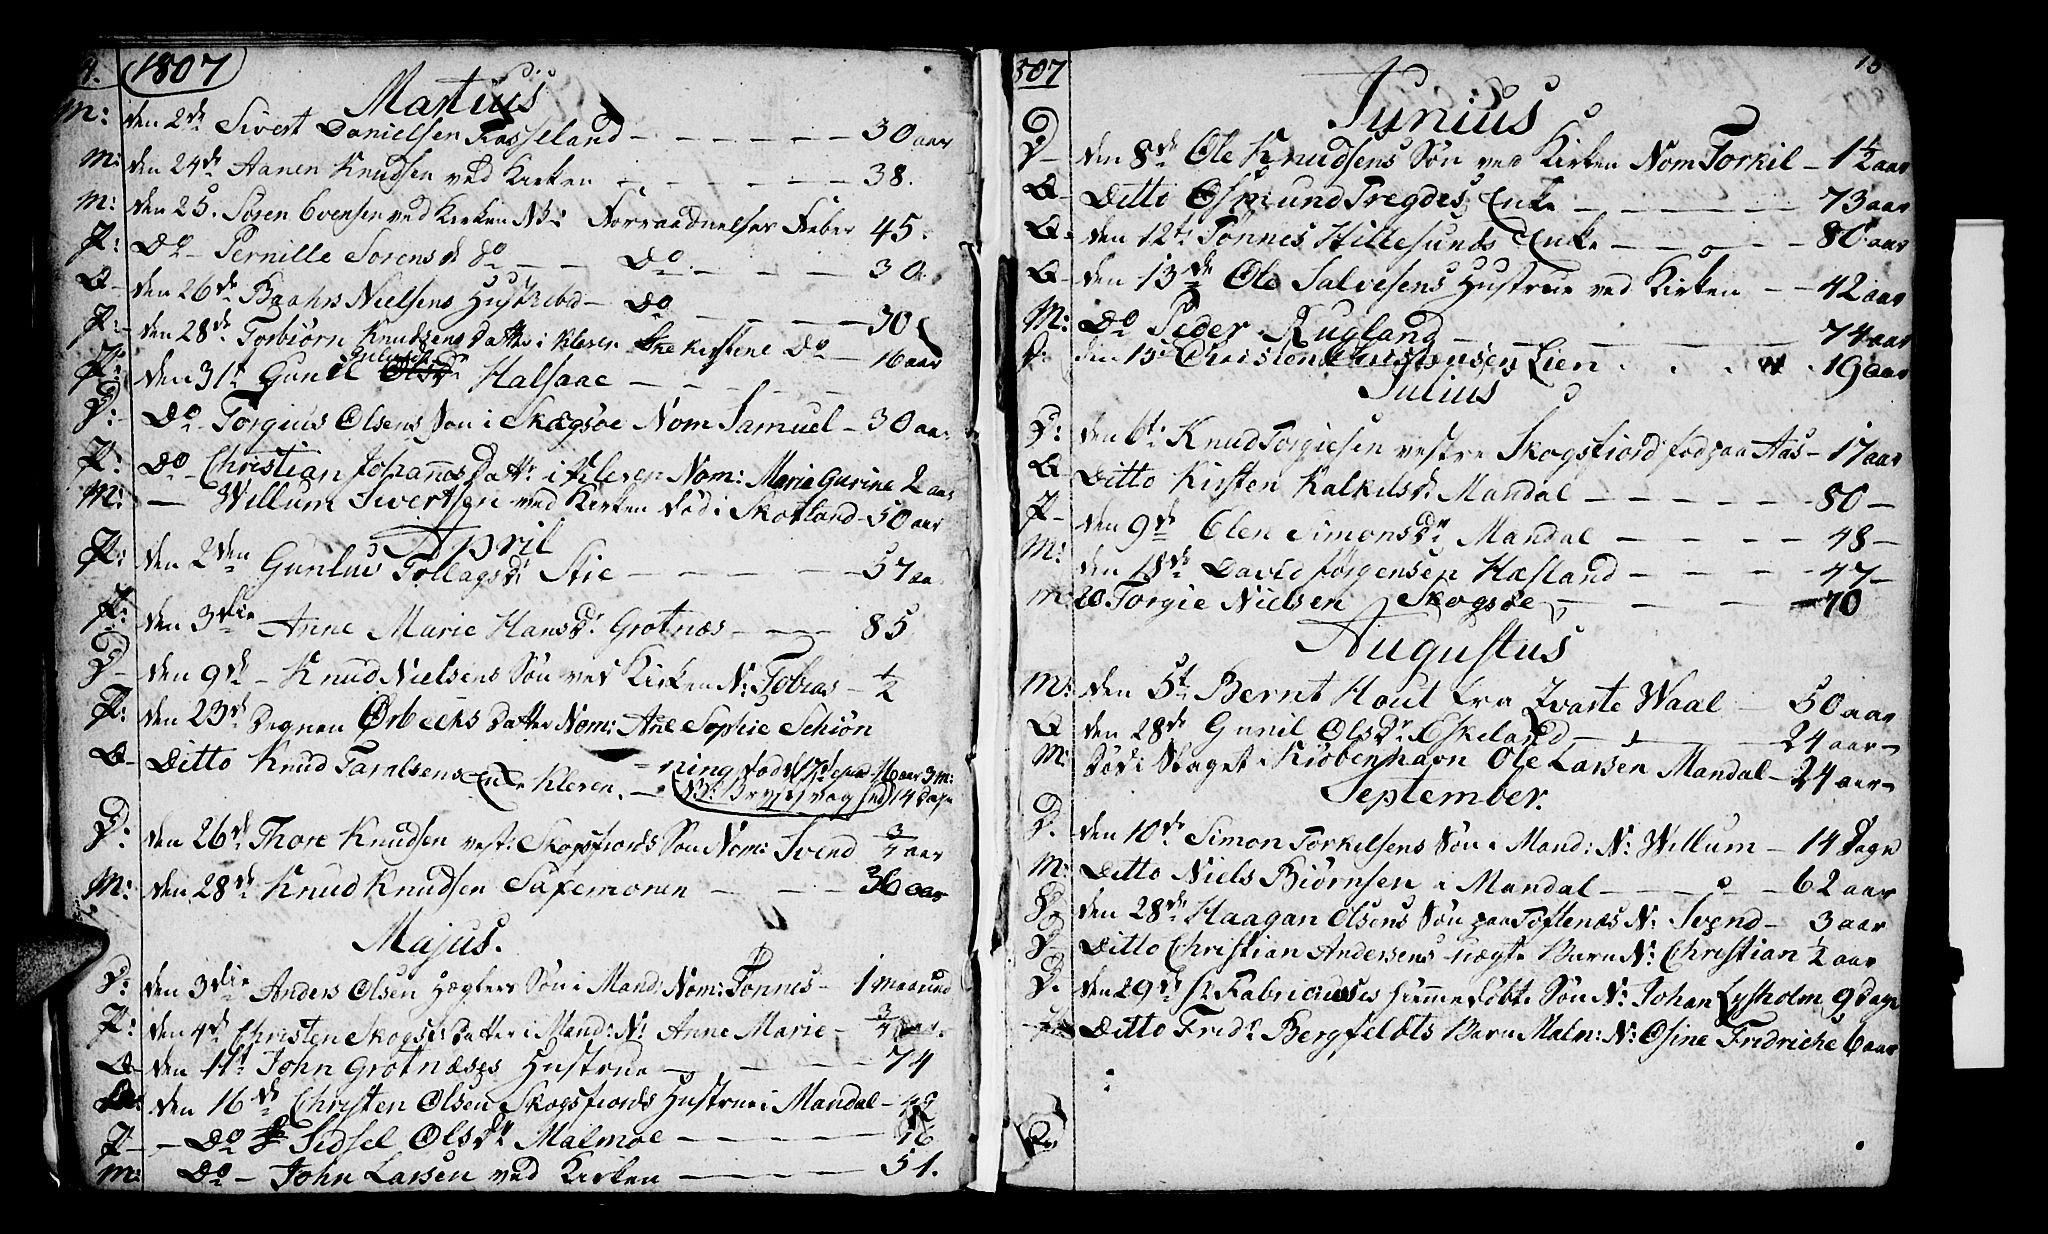 4. 1807
Martius
M: den 2de Sivert Danielsen Fasseland 30 aar
M: den 24de Aanen Knudsen ved Kirken 38.
M: den 25. Soren Evensen ved Kirken NB: Forraadnelses Feber 45.
P: Do Pernille Sorensd. Do 30.
Q den 26de Baahrs Nielsens Hustrue Do 30
P: den 28de Torbiörn Knudsens datter i Kleven Kirstene Do 16 aar
P: den 31t Gunil Halsaae
D: Do Torgius Olsens Søn i Skægsøe Nom Samuel 30 aar
P: Do Christian Johannes Datter i Kleven Nom: Marie Gurine 2 aar
M: Willum Sivertsen ved Kirken fød i Skotland 50 aar
April
P: den 2den Gunluv Tollagsdr Stie 57 aar
P: den 3die Anne Marie Hansdr Grotnæs 85
D den 9de Knud Nielsens Søn ved Kirken N: Tobias 1/2
P: den 23de Degnen Ørbecks datter Nom: Ane Sophie Schiön
ning fødd 17de 16 aar 3 m:
Q Ditto Knud Taralsens Enke Kleven. NB: Brystsvaghed 14 dage
D: den 26de Thore Knudsen vest: Skogsfiords Søn Nom: Svend 3/4 aar
M: den 28de Knud Knudsen Säfemonen 36 aar
Majus.
D: den 3die Anders Olsen Søn i Mand: Nom: Tönnes 1 maanud
P: den 4de Christen Skogses datter i Mand: N: Anne Marie 3/4 aar
Q den 11te John Grotnæses Hustrue 74
Q: den 16de Christen Olsen Skogsfiords Hustrue i Mandal 49
P Do Sidsel Olsdr Malmøe 16
M: Do John Larsen ved Kirken 51.
807 15
Junius
D den 8de Ole Knudsens Søn ved Kirken Nom Torkil 1 1/2 aar
Q Ditto Osmund Tregdes Enke 73 aar
Q. den 12te Tönnes Hillesunds Enke 80 aar
Q den 13de Ole Salvesens Hustrue ved Kirken 42 aar
M: Do Peder Rugland 74 aar
D: den 15 Christen Christensen Lien 19 aar
Julius
D: den 6te Knud Torgiesen vestre Skogsfiord fød paa Aas 17 aar
Q Ditto Kirsten Kalkilsd. Mandal 80
P den 9de Elen Simonsdr Mandal 48
M: den 18de David Jørgensen Hæsland 47
M: 20. Torgie Nielsen Skogsøe 70
Augustus
M: den 5t Bernt Hout fra Zwarte Waal 50 aar
Q den 28de Gunil Olsdr Eskeland 24 aar
M: Död i Slaget i Kiøbenhavn Ole Larsen Mandal 24 aar
September.
D. den 10de Simon Torkelsens Søn i Mand: N: Willum 14 dage
M: Ditto Niels Biörnsen i Mandal 62 aar
D. den 28de Haagan Olsens Søn paa Toftenæs N: Svend 3 aar
D Ditto Christian Andersens uægte Barn N: Christian 1/2 aar
D. den 29de Hr Fabriciuses hiemmedøbte Søn N: Johan Lysholm 9 dage
Ditto Fredr Bergfeldts Barn Malm: N: Osine Fredriche 6 aar